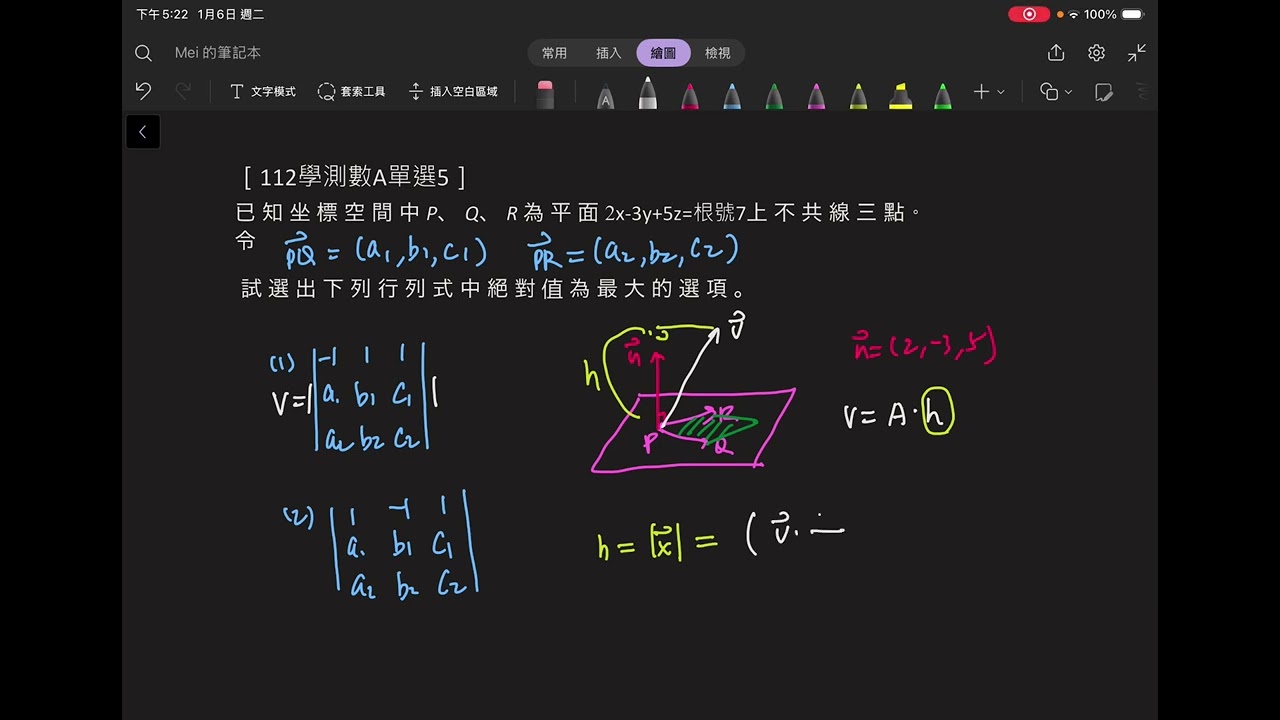 下午5:22 1月6日 週二
100%
Mei 的筆記本
常用 插入 繪圖 檢視
T 文字模式 套索工具 插入空白區域
A
[ 112學測數A單選5 ]
已知坐標空間中P、Q、R為平面2x-3y+5z=根號7上不共線三點。
令 PQ⃗ = (a₁, b₁, c₁) PR⃗ = (a₂, b₂, c₂)
試選出下列行列式中絕對值為最大的選項。
(1) | -1 1 1 |
V = | | a₁ b₁ c₁ | |
| a₂ b₂ c₂ |
v⃗
n⃗
h
P
R
Q
n⃗ = (2, -3, 5)
V = A · h
(2) | 1 -1 1 |
| a₁ b₁ c₁ |
| a₂ b₂ c₂ |
h = |x⃗| = ( v⃗ ·